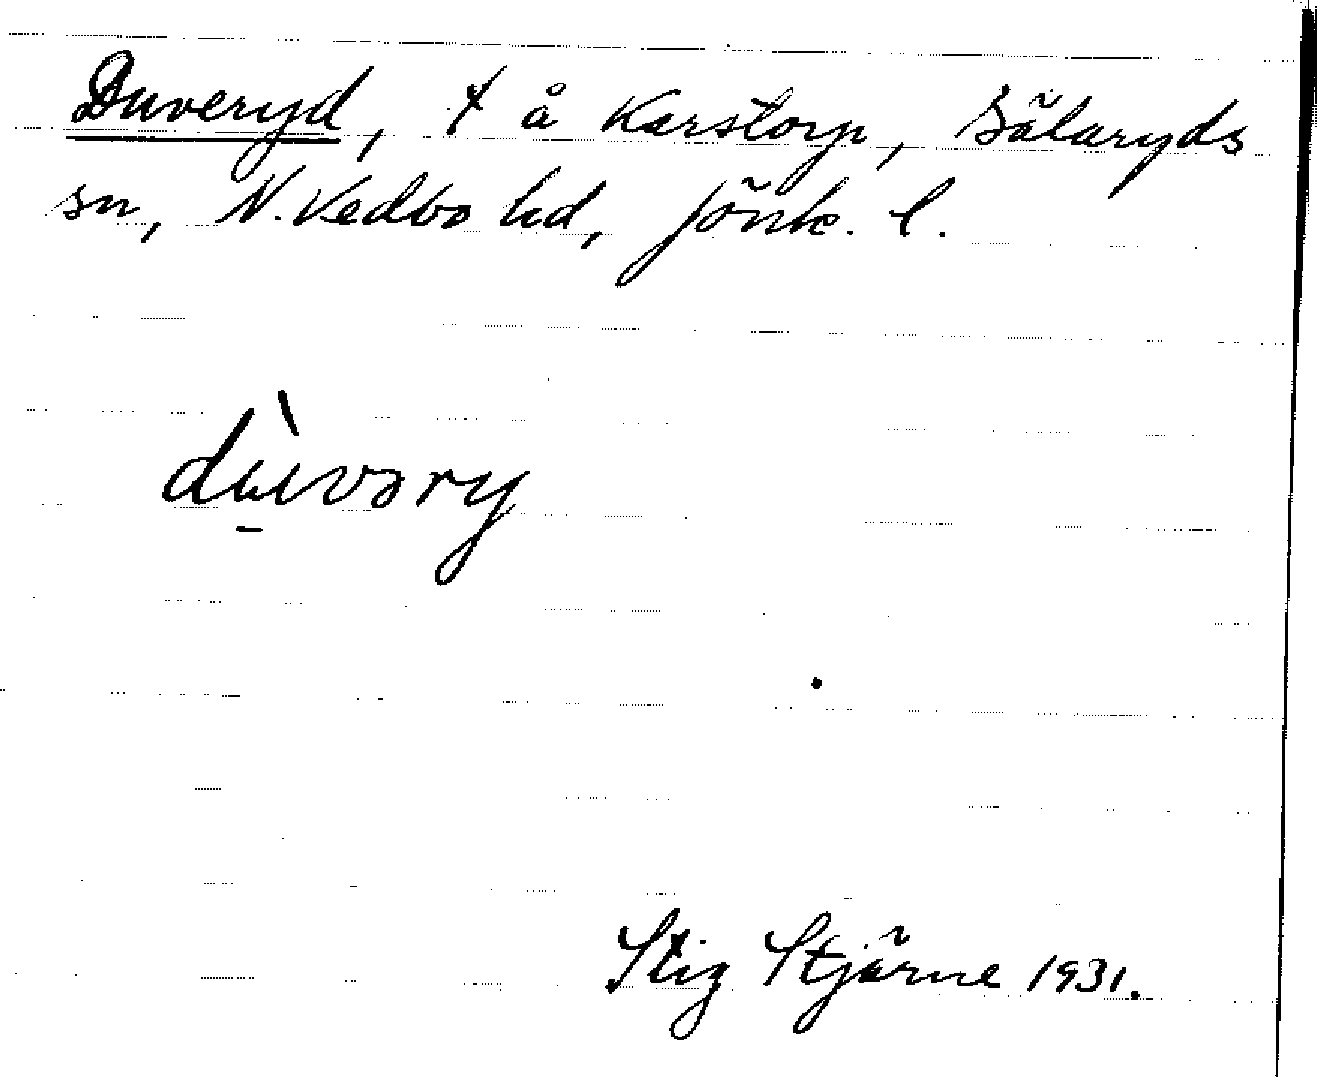 Duveryd, t å Karstorp, Bälaryds
sn, N. Vedbo hd, Jönk. l.
dùvəry
Stig Stjärne 1931.